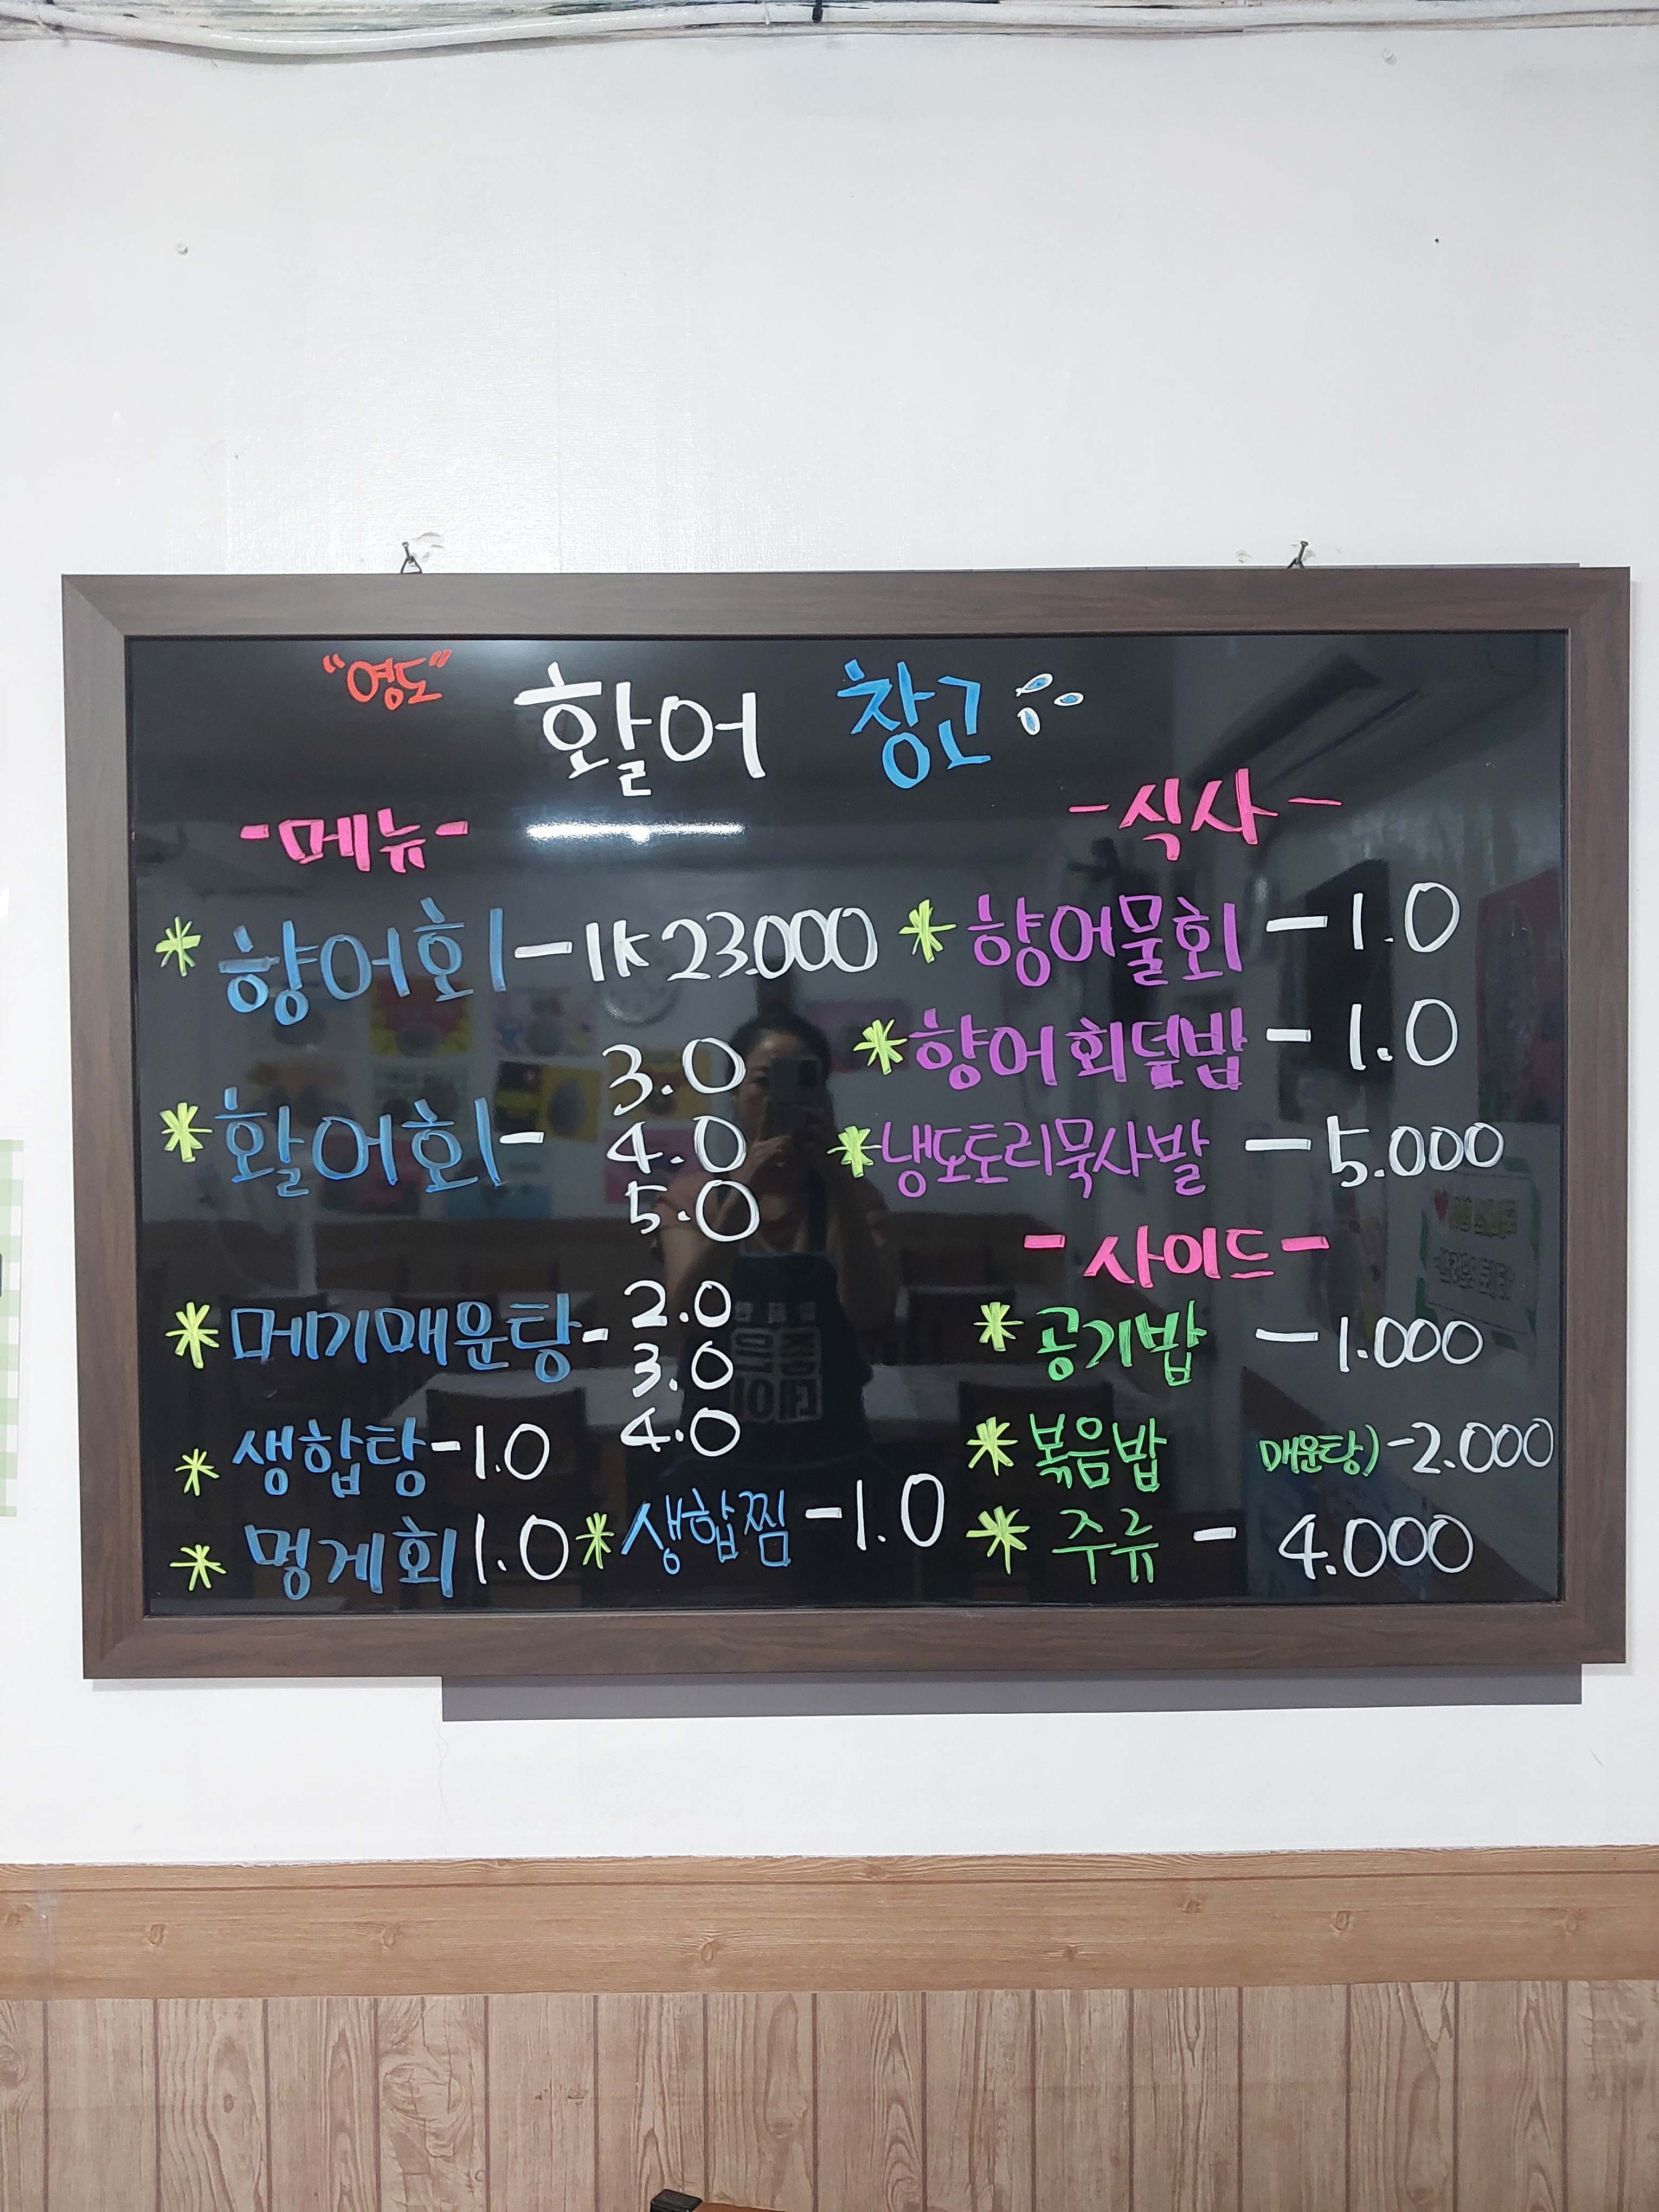 "영도" 활어 창고
-메뉴-
* 향어회 - 1k 23.000
* 활어회 - 3.0
4.0
5.0
* 메기매운탕 - 2.0
3.0
4.0
* 생합탕 - 1.0
* 멍게회 1.0 * 생합찜 - 1.0
- 식사 -
* 향어물회 - 1.0
* 향어회덮밥 - 1.0
* 냉도토리묵사발 - 5.000
- 사이드 -
* 공기밥 - 1.000
* 볶음밥 매운탕) - 2.000
* 주류 - 4.000